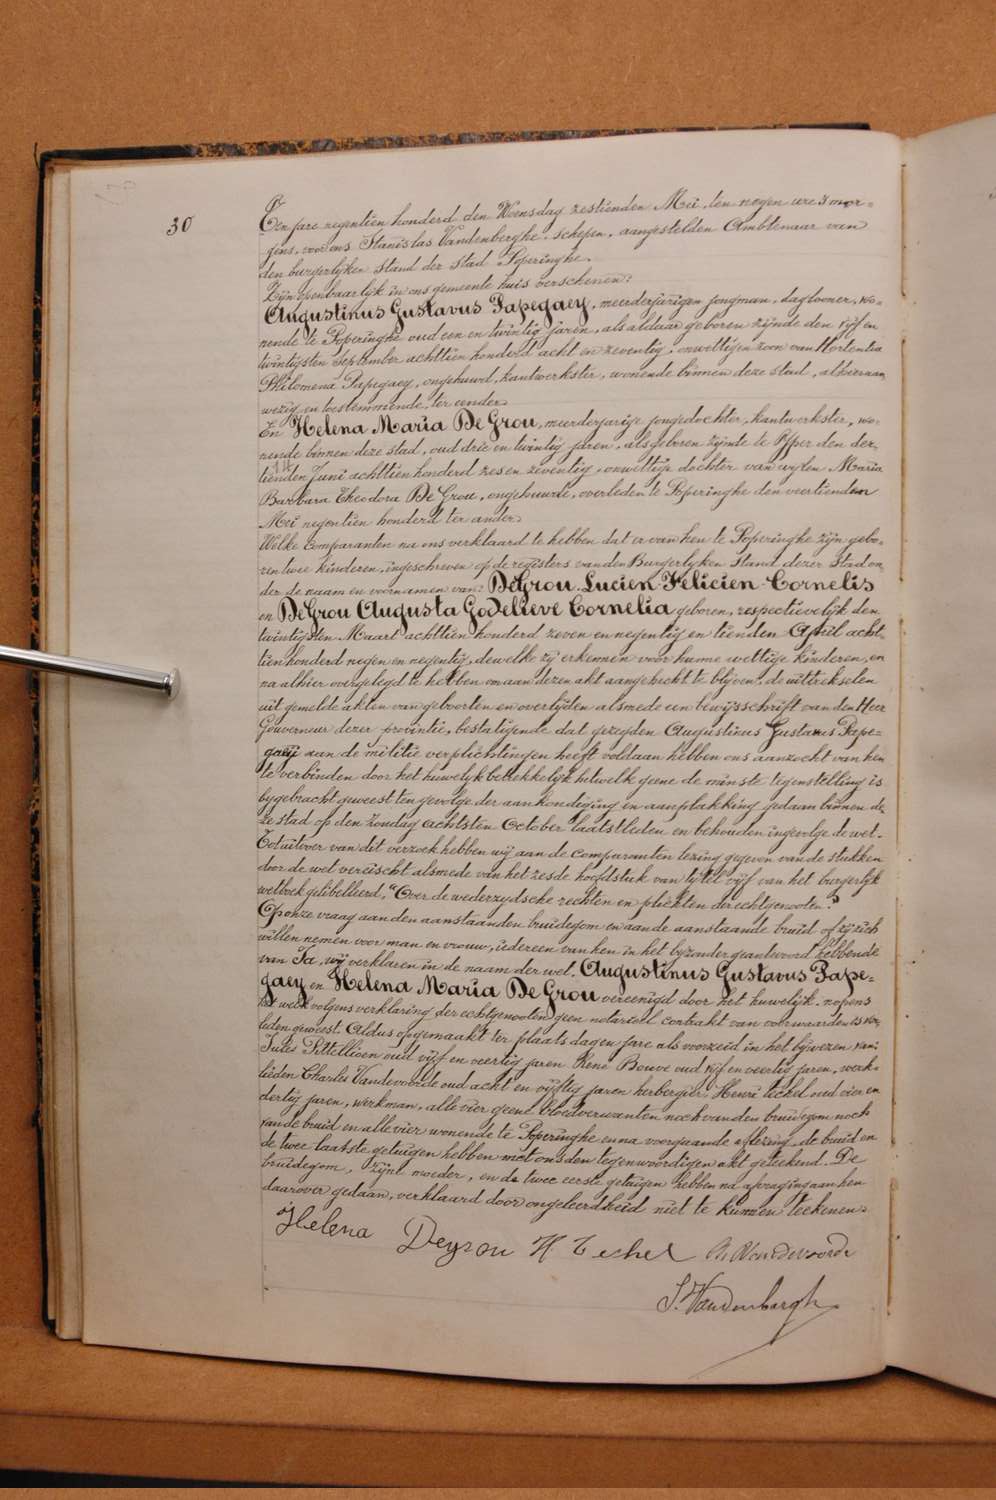 30
Ten jare negentien honderd den Woensdag zestienden Mei, ten negen ure 's mor-
gens, voor ons Stanislas Vandenberghe, schepen, aangestelden Ambtenaar van
den burgerlyken stand der stad Poperinghe.
Zyn openbaarlyk in ons gemeente huis verschenen:
Augustinus Gustavus Papegaey, meerderjarigen jongman, daglooner, wo-
nende te Poperinghe oud een en twintig jaren, als aldaar geboren zynde den vyf en
twintigsten September achttien honderd acht en zeventig, onwettigen zoon van Hortentia
Philomena Papegaey, ongehuwd, kantwerkster, wonende binnen deze stad, alhier aan
wezig en toestemmende, ter eender
En Helena Maria De Grou, meerderjarige jongedochter, kantwerkster, wo-
nende binnen deze stad, oud drie en twintig jaren, als geboren zynde te Yper den der-
tienden Juni achttien honderd zes en zeventig, onwettige dochter van wylen Maria
Barbara Theodora De Grou, ongehuwde, overleden te Poperinghe den veertienden
Mei negentien honderd ter ander
Welke comparanten na ons verklaard te hebben dat er van hen te Poperinghe zyn gebo-
ren twee kinderen, ingeschreven op de registers van den Burgerlyken Stand dezer Stad on-
der de naam en voornamen van: DeGrou Lucien Felicien Cornelis
en DeGrou Augusta Godelieve Cornelia geboren, respectievelyk den
twintigsten Maart achttien honderd zeven en negentig en tienden April acht-
tien honderd negen en negentig, dewelke zy erkennen voor hunne wettige kinderen, en
na alhier overgelegd te hebben om aan dezen akt aangehecht te blyven, de uittreksels
uit gemelde akten van geboorten en overlyden alsmede een bewysschrift van den Heer
Gouverneur dezer provintie, bestatigende dat gezegden Augustinus Gustavus Pape-
gaey aan de militie verplichtingen heeft voldaan hebben ons aanzocht van hen
te verbinden door het huwelyk betrekkelyk hetwelk geene de minste tegenstelling is
bygebracht geweest ten gevolge der aankondiging en aanplakking gedaan binnen de-
ze stad op den Zondag achtsten October laatstleden en behouden ingevolge de wet.
Tot uitvoer van dit verzoek hebben wy aan de comparanten lezing gegeven van de stukken
door de wet vereischt alsmede van het zesde hoofdstuk van tytel vyf van het burgerlyk
wetboek gelibelleerd, "Over de wederzydsche rechten en plichten der echtgenooten".
Op onze vraag aan den aanstaanden bruidegom en aan de aanstaande bruid of zy zich
willen nemen voor man en vrouw, iedereen van hen in het byzonder geantwoord hebbende
van Ja, wy verklaren in de naam der wet, Augustinus Gustavus Pape-
gaey en Helena Maria De Grou vereenigd door het huwelyk, nopens
het welk volgens verklaring der echtgenooten geen notarieel contrakt van voorwaarden is ver-
leden geweest. Aldus opgemaakt ter plaats dagen jare als voorzeid in het bywezen van:
Jules oud vyf en veertig jaren René Bouve oud vyf en veertig jaren, werk-
lieden Charles Vandevoorde oud acht en vyftig jaren herbergier, Henri Teckel oud vier en
dertig jaren, werkman, alle vier geene bloedverwanten noch van den bruidegom noch
van de bruid en alle vier wonende te Poperinghe en na voorgaande aflezing, de bruid en
de twee laatste getuigen hebben met ons den tegenwoordigen akt geteekend. De
bruidegom, zyne moeder, en de twee eerste getuigen hebben na afvraging aan hen
daarover gedaan, verklaard door ongeleerdheid niet te kunnen teekenen.
Helena Degrou H Techel Ch Vandevoorde
S. Vandenberghe